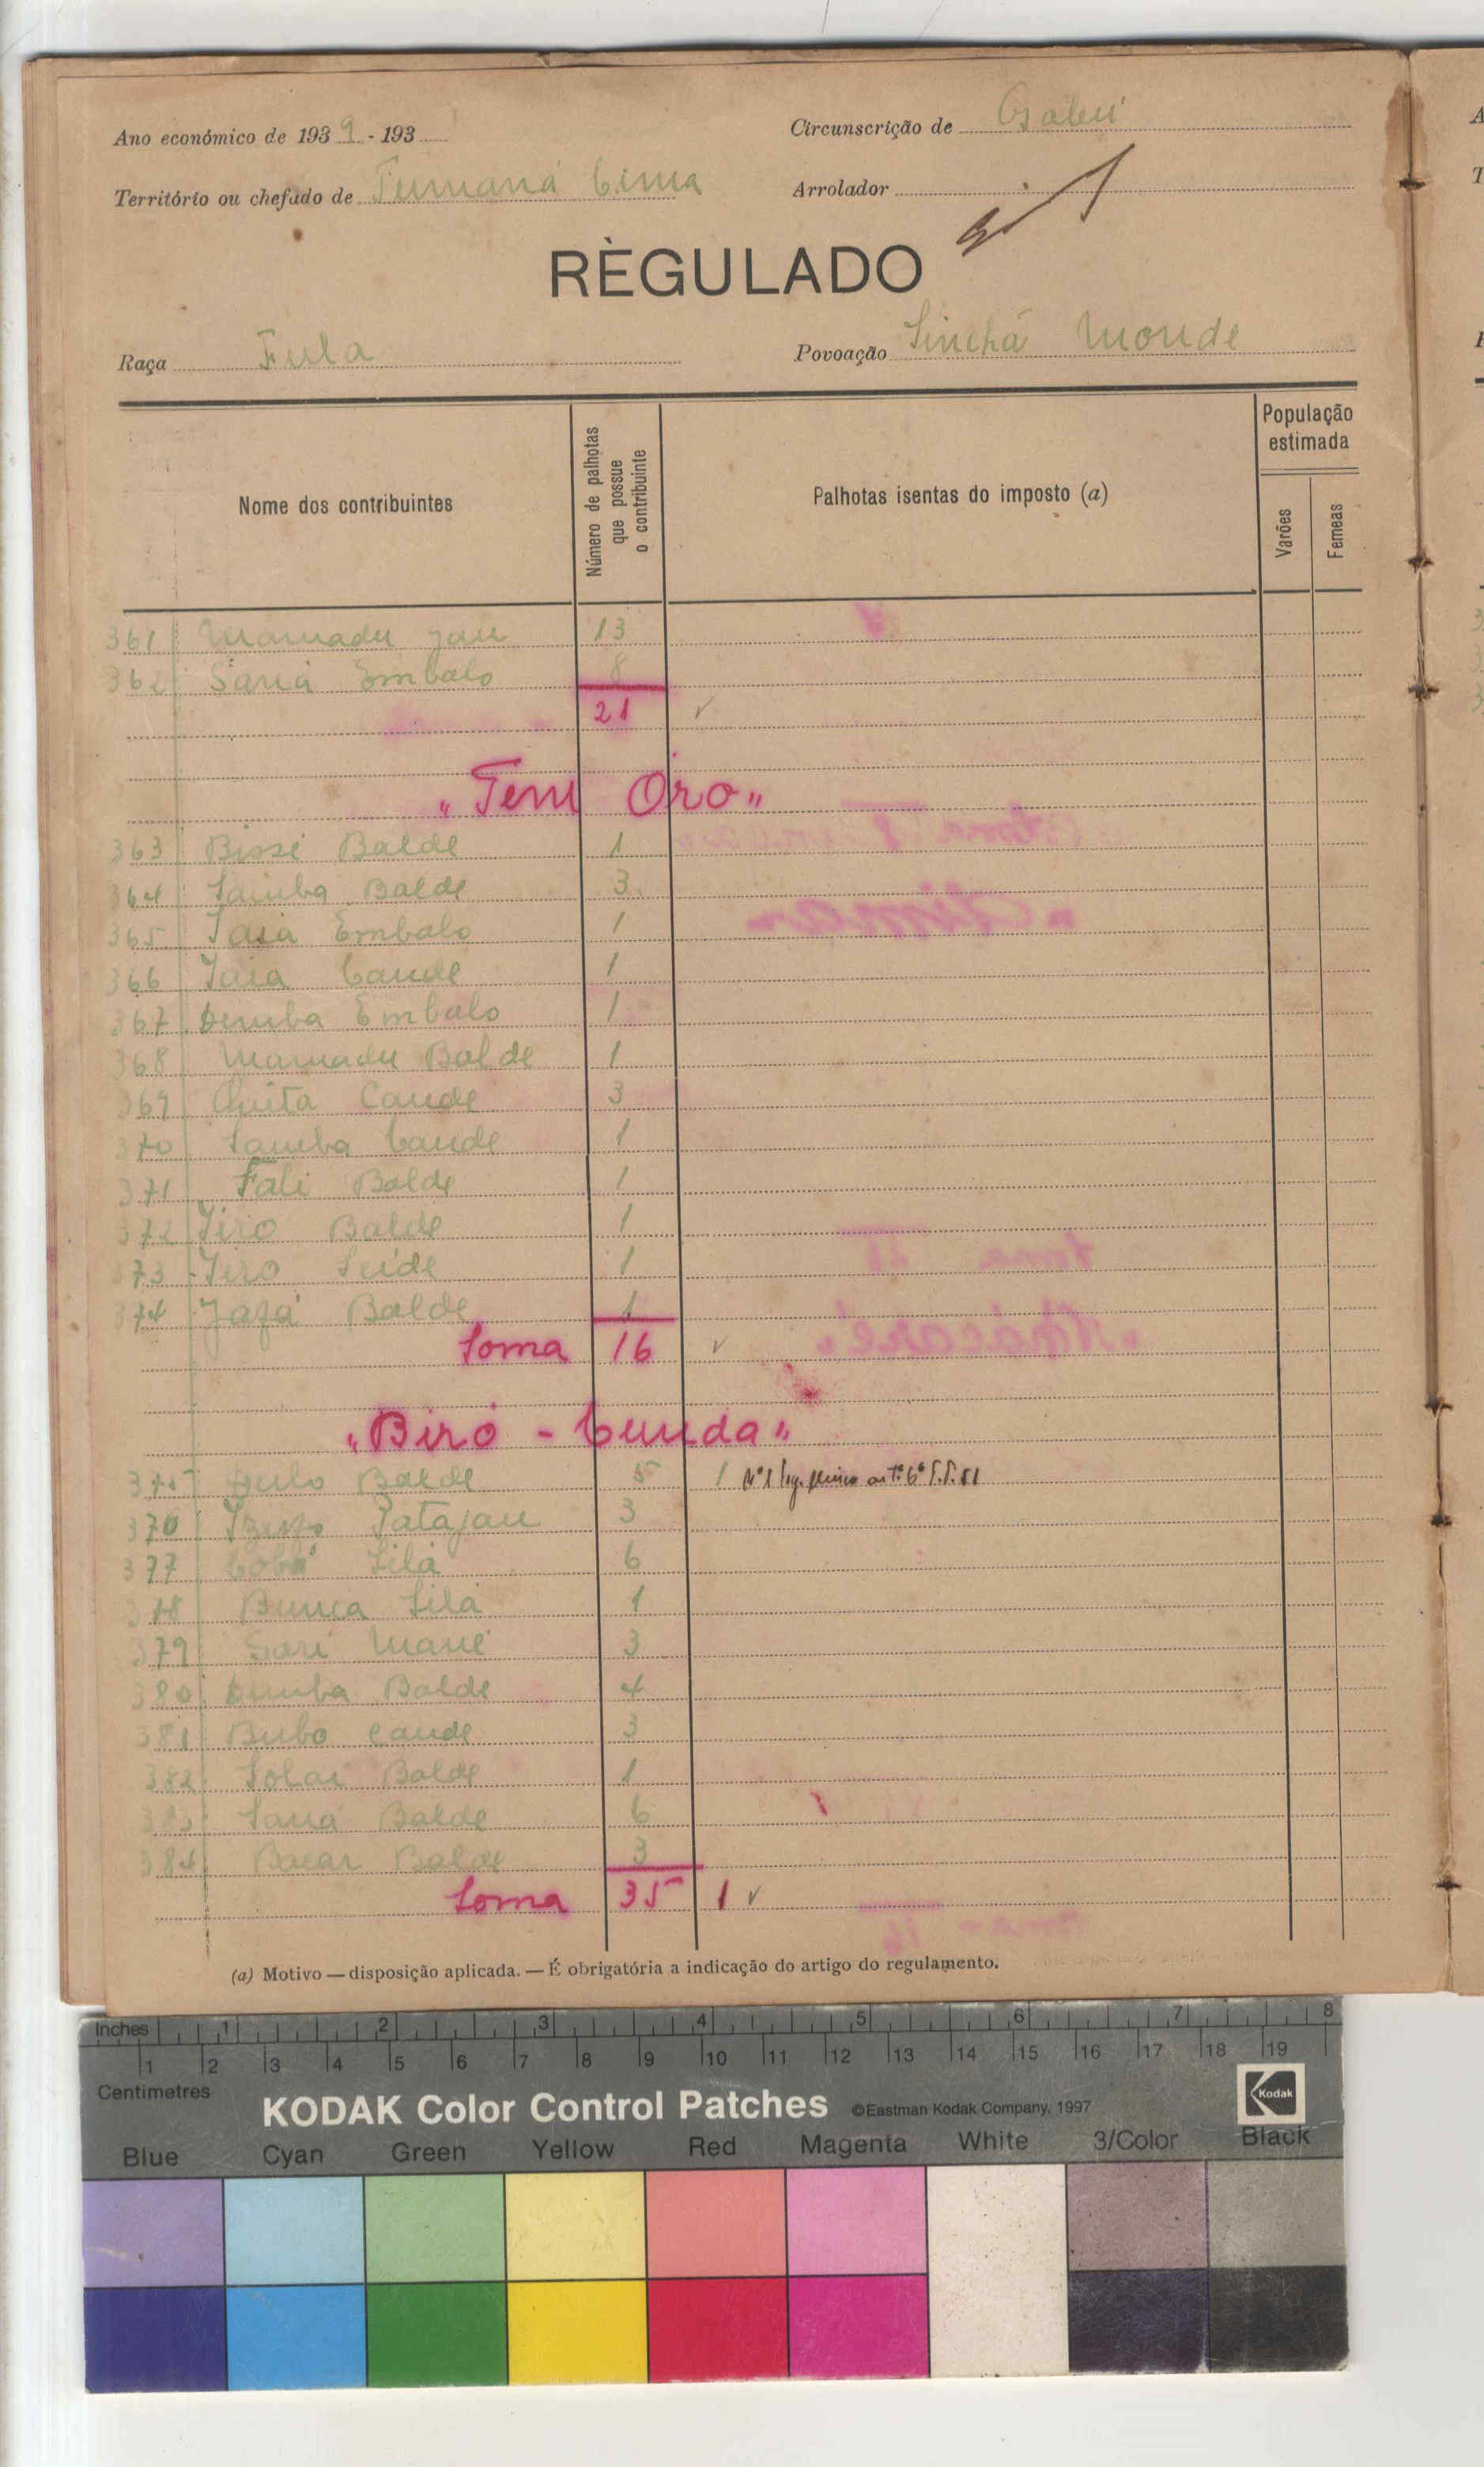 Ano económico de 1939 - 193
Circunscrição de Gabú
Território ou chefado de Tumaná Cima
Arrolador
RÈGULADO
Raça Fula
Povoação Sinchã Monde
Nome dos contribuintes
Número de palhotas que possue o contribuinte
Palhotas isentas do imposto (a)
População estimada
Varões
Femeas
361 Mamadu Jau 13
362 Saná Embalo 8
21
"Tem Oro"
363 Bissi Balde 1
364 Samba Balde 3
365 Embalo 1
366 Jaia Cande 1
367 Demba Embalo 1
368 Mamadu Balde 1
369 Cande 3
370 Samba Cande 1
371 Fali Balde 1
372 Balde 1
373 Seide 1
374 Balde 1
Soma 16
"Biro - Cunda"
375 Balde 5 1 Nº1
376 3
377 Sila 6
378 Sila 1
379 Mané 3
380 Demba Balde 4
381 Bubo Cande 3
382 Balde 1
383 Saná Balde 6
384 Bacar Balde 3
Soma 35 1
(a) Motivo — disposição aplicada. — É obrigatória a indicação do artigo do regulamento.
Inches 1 2 3 4 5 6 7 8
1 2 3 4 5 6 7 8 9 10 11 12 13 14 15 16 17 18 19
Centimetres
KODAK Color Control Patches ©Eastman Kodak Company, 1997 Kodak
Blue Cyan Green Yellow Red Magenta White 3/Color Black